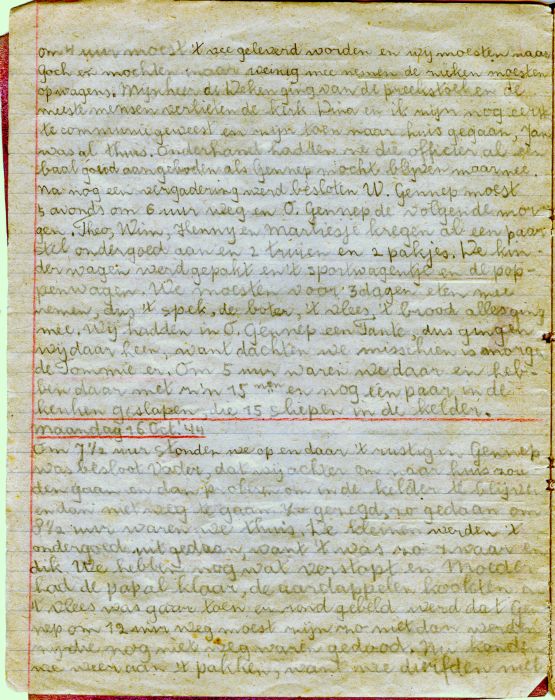 om 4 uur moest 't vee geleverd worden en wij moesten naar
Goch en mochten maar weinig mee nemen de zieken moesten
op wagens. Mijnheer de Deken ging van de preekstoel en de
meeste mensen verlieten de kerk Dina en ik zijn nog eerst
te communie geweest en zijn toen naar huis gegaan, Jan
was al thuis. Onderhand hadden ze die officier al een
baal goed aangeboden als Gennep mocht blijven maar nee.
na nog een vergadering werd besloten W. Gennep moest
s avonds om 6 uur weg en O. Gennep de volgende mor
gen. Theo, Wim, Henny en Marriesje kregen al een paar
stel ondergoed aan en 2 truien en 2 pakjes. De kin
derwagen werd gepakt en 't sportwagentje en de pop-
penwagen. We moesten voor 3 dagen eten mee
nemen, dus 't spek, de boter, 't vlees, 't brood alles ging
mee. Wij hadden in O. Gennep een Tante, dus gingen
wij daar heen, want dachten we misschien is morge
de Tommie er. Om 5 uur waren we daar en heb-
ben daar met z'n 15 en en nog een paar in de
keuken geslapen, die 15 sliepen in de kelder.
maandag 16 Oct. '44
Om 7 1/2 uur stonden we op en daar 't rustig in Gennep
was besloot Vader, dat wij achter om naar huis zou
den gaan en dan om in de kelder te blijven
en dan niet weg te gaan. Zo gezegd, zo gedaan om
8 1/2 uur waren we thuis. De kleinen werden 't
ondergoed uit gedaan, want 't was zo zwaar en
dik. We hebben nog wat verstopt en Moeder
had de pap al klaar, de aardappelen kookten en
't vlees was gaar toen er rond gebeld werd dat Gen
nep om 12 uur weg moest zijn zo niet dan werden
zij die nog niet weg waren gedood. Nu konden
we weer aan 't pakken, want we dierfden niet